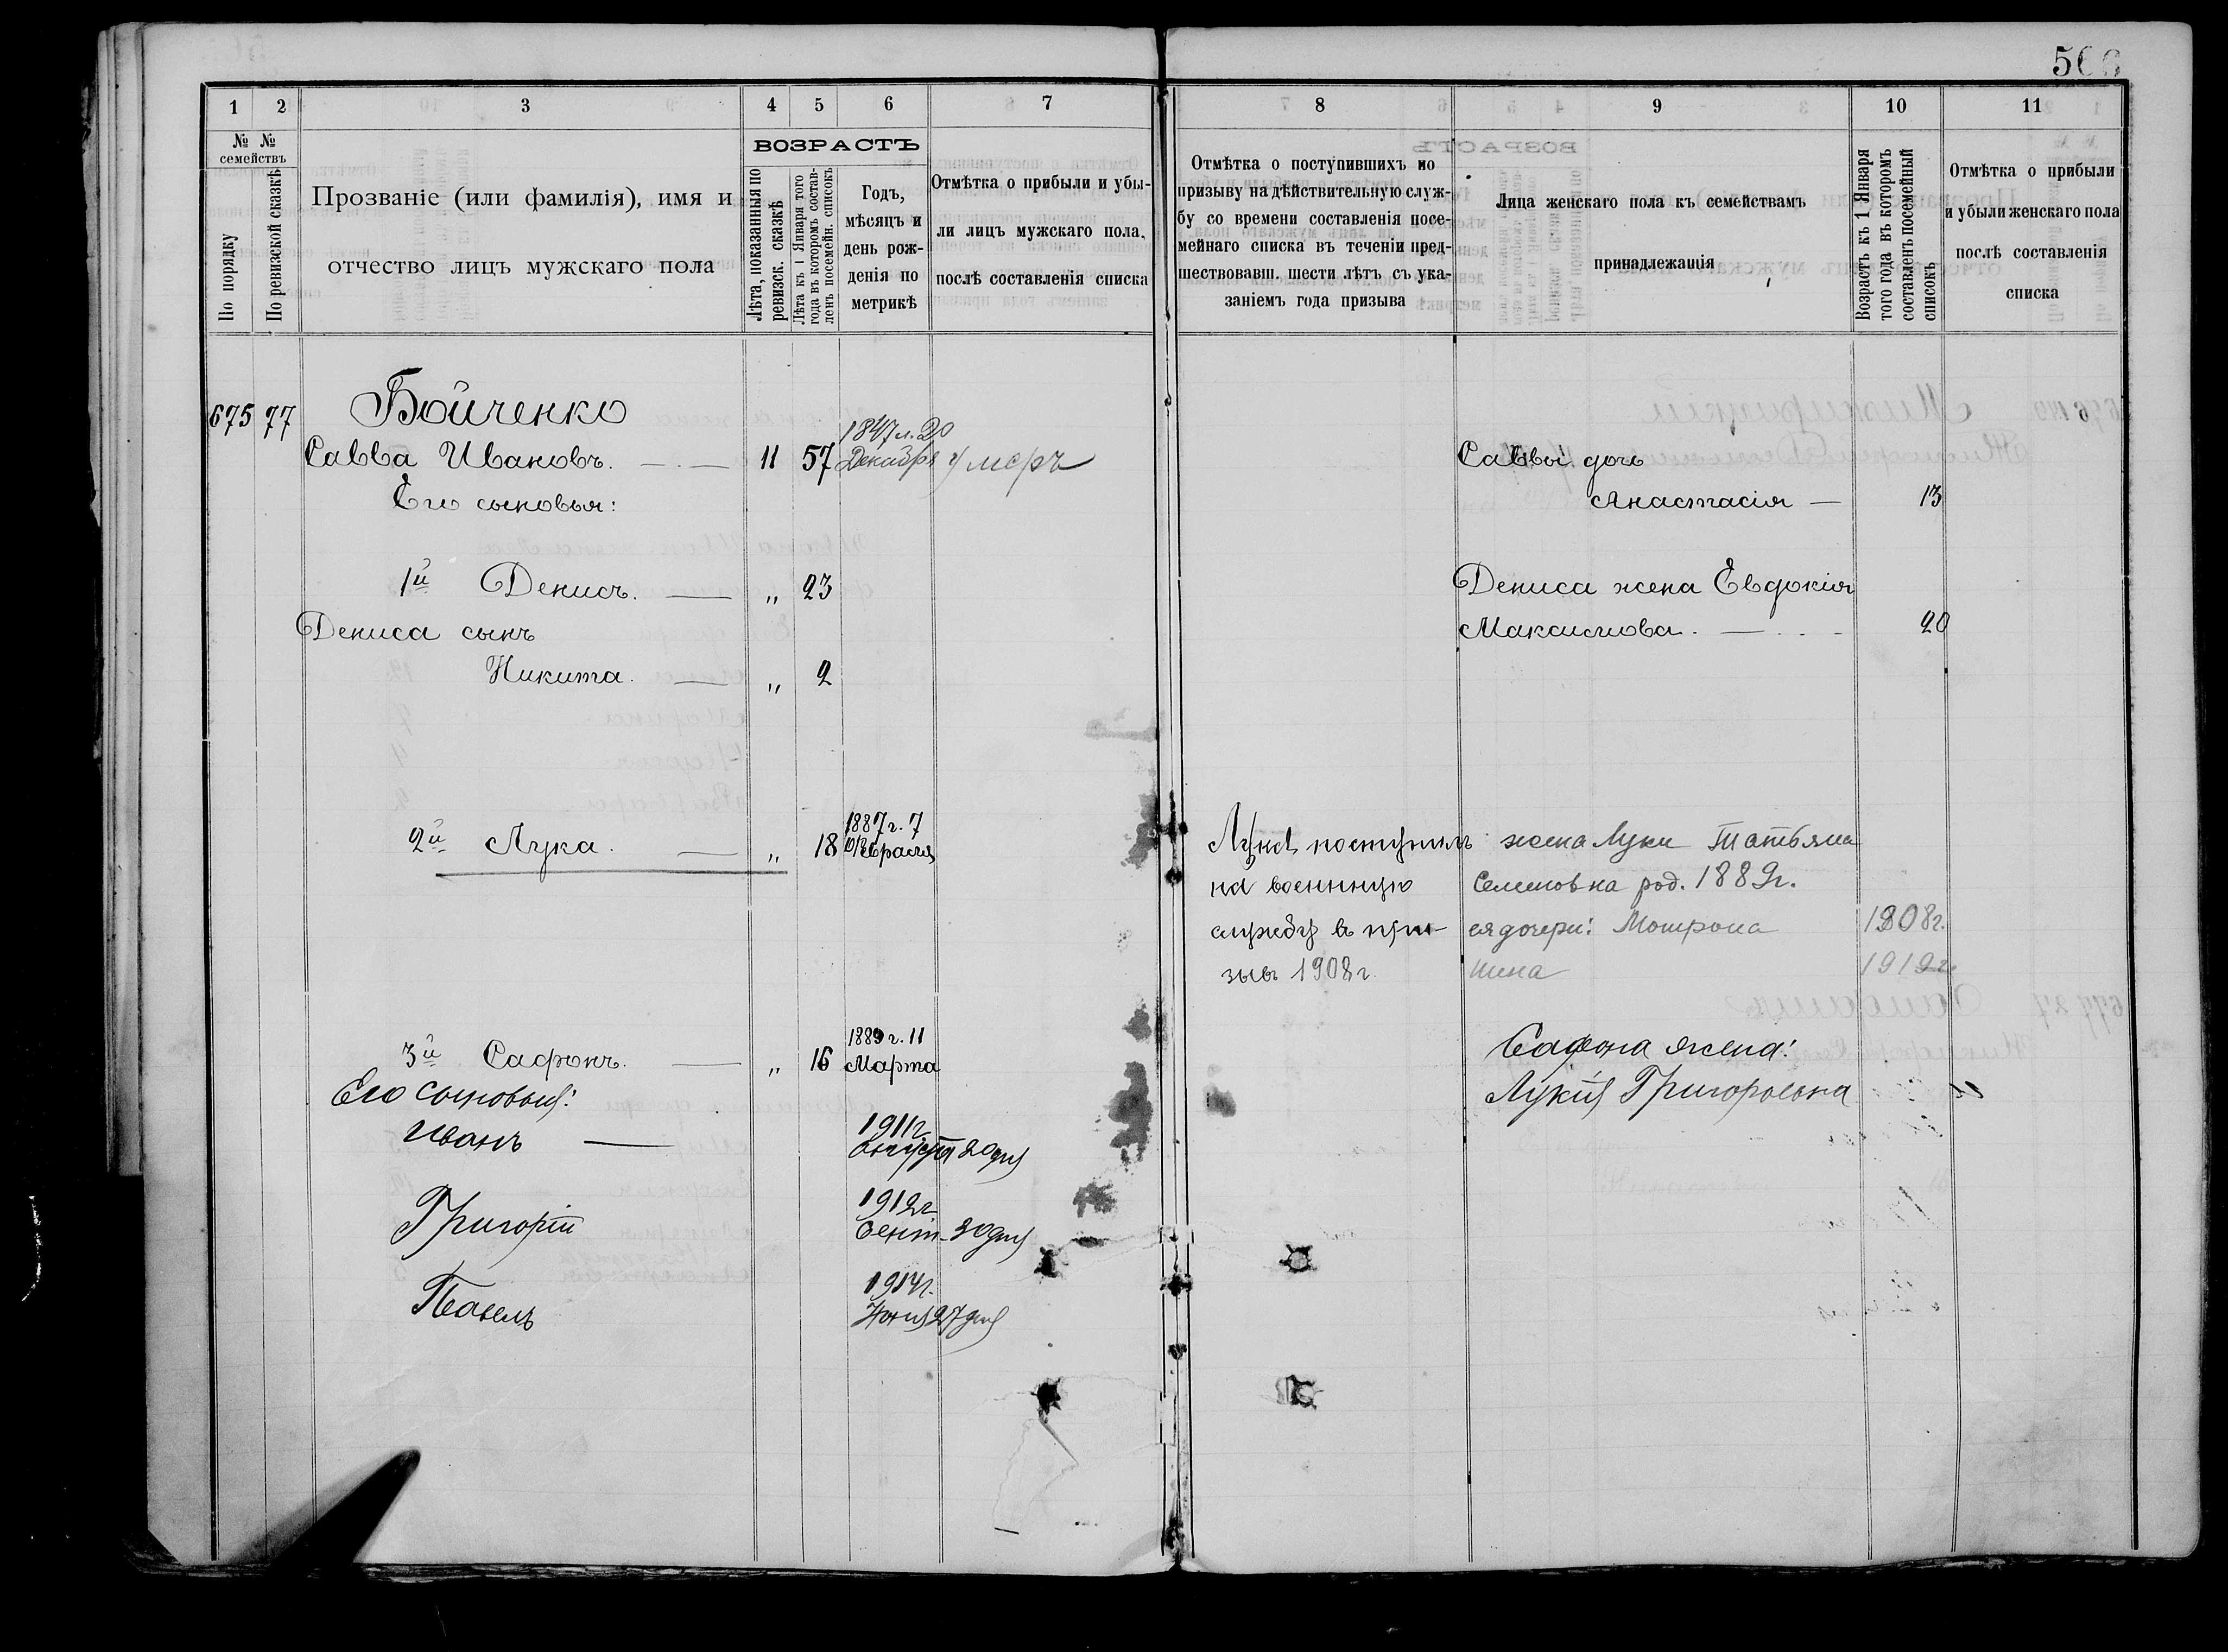 1
2
3
4
5
6
7
8
9
10
11
№ №
семействъ
По порядку
По ревизской сказкѣ
Прозваніе (или фамилія), имя и
отчество лицъ мужскаго пола
ВОЗРАСТЪ
Лѣта, показанныя по
ревизск. сказкѣ
Лѣта къ 1 Января того
года въ которомъ состав-
ленъ посемейн. списокъ
Годъ,
мѣсяцъ и
день рож-
денія по
метрикѣ
Отмѣтка о прибыли и убы-
ли лицъ мужскаго пола,
послѣ составленія списка
Отмѣтка о поступившихъ по
призыву на дѣйствительную служ-
бу со времени составленія посе-
мейнаго списка въ теченіи пред-
шествовавш. шести лѣтъ съ ука-
заніемъ года призыва
Лица женскаго пола къ семействамъ
принадлежащія
Возрастъ къ 1 Января
того года въ которомъ
составленъ посемейный
списокъ
Отмѣтка о прибыли
и убыли женскаго пола
послѣ составленія
списка
675 77 Бойченко
Савва Ивановъ. 11 57 1847г. 20
Декабря умеръ
Саввы дочь
Его сыновья:
Анастасія — 13
1й Денисъ. — " 23
Дениса жена Евдокія
Дениса сынъ
Максимова. — 20
Никита. — " 2
2й Лука. — " 18 1887г. 7
Февраля
Лука поступилъ
на военную
службу в при-
зывъ 1908г.
жена Луки Татьяна
Семеновна род. 1889г.
ея дочери: Мотрона 1908г.
Нина 1912г.
3й Сафонъ. — " 16 1889г. 11
Марта
Сафона жена:
Лукія Григоровна
Его сыновья:
Иванъ — 1911г.
Августа 20дня
Григорій 1912г
Сент. 30дня
Павелъ 1914г.
Іюня 27дня